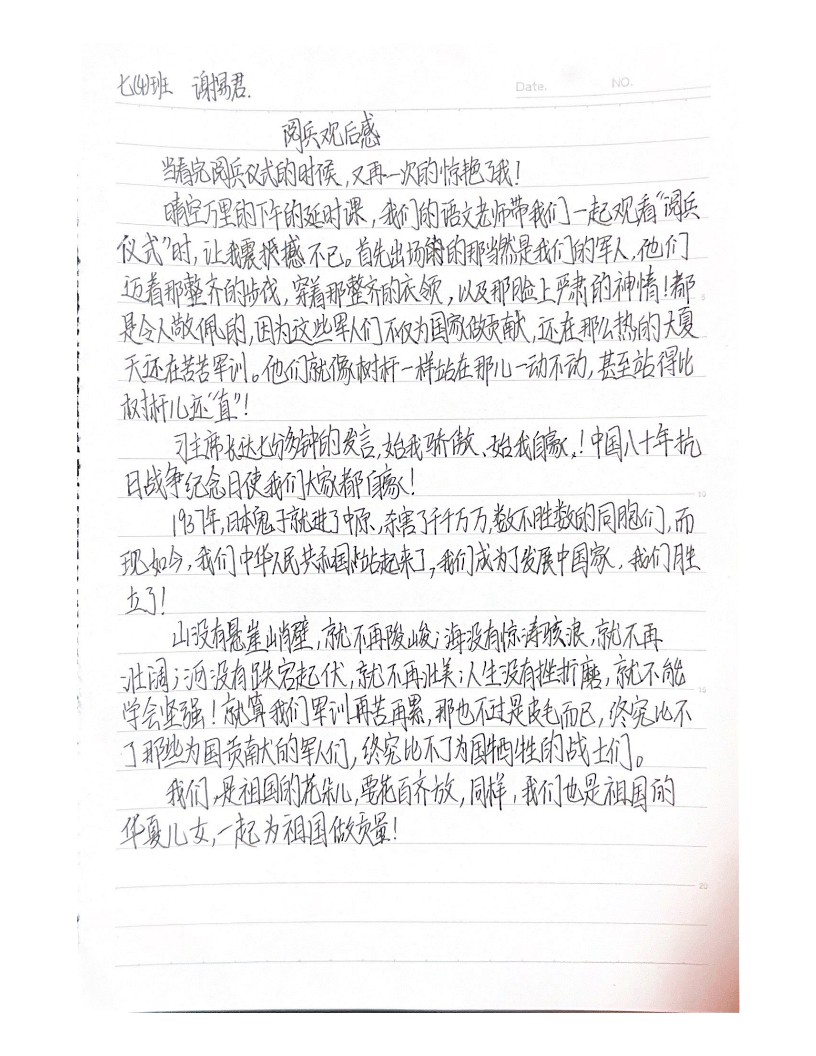 Date.
NO.
七(4)班 谢易君.
阅兵观后感
当看完阅兵仪式的时候,又再一次的惊艳了我!
晴空万里的下午的延时课,我们的语文老师带我们一起观看“阅兵
仪式”时,让我震撼不已。首先出场的那当然是我们的军人,他们
迈着那整齐的步伐,穿着那整齐的衣领,以及那脸上严肃的神情!都
是令人敬佩的,因为这些军人们不仅为国家做贡献,还在那么热的大夏
天还在苦苦军训。他们就像树杆一样站在那儿一动不动,甚至站得比
树杆儿还“直”!
习主席长达七分多钟的发言,始我骄傲、始我自豪!中国八十年抗
日战争纪念日使我们大家都自豪!
1937年,日本鬼子就进了中原,杀害了千千万万,数不胜数的同胞们,而
现如今,我们中华人民共和国站起来了,我们成为了发展中国家,我们胜
立了!
山没有悬崖峭壁,就不再险峻;海没有惊涛骇浪,就不再
壮阔;河没有跌宕起伏,就不再壮美;人生没有挫折磨,就不能
学会坚强!就算我们军训再苦再累,那也不过是皮毛而已,终究比不
了那些为国贡献的军人们,终究比不了为国牺牲的战士们。
我们,是祖国的花朵儿,要花百齐放,同样,我们也是祖国的
华夏儿女,一起为祖国做贡量!
5
10
15
20